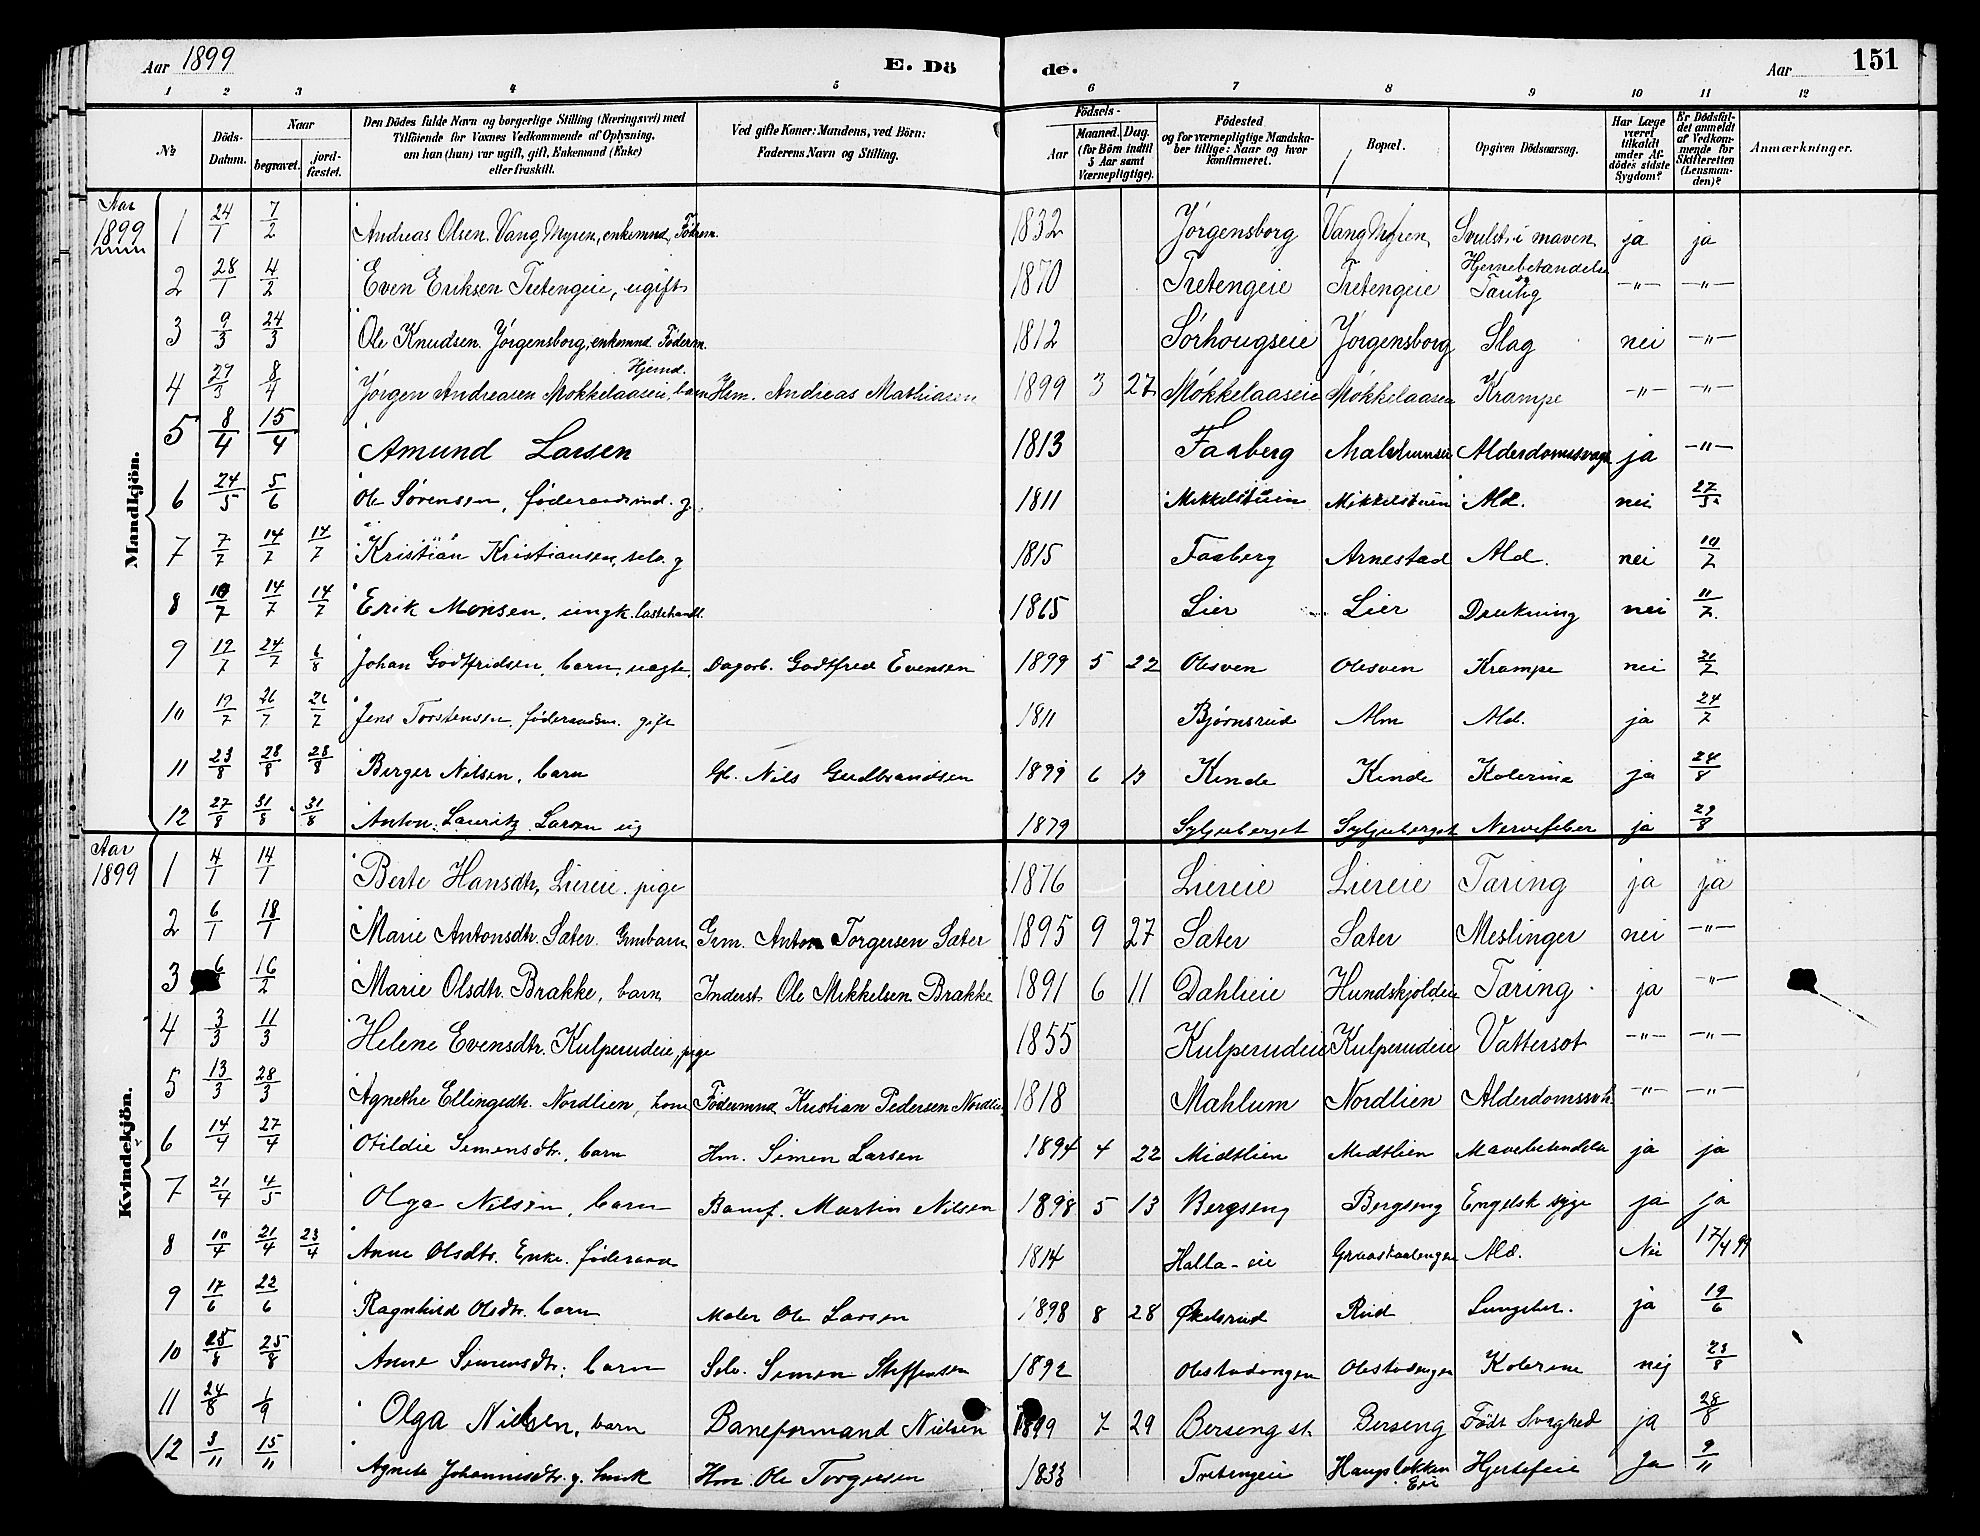 Aar 1899 E. Dö de. Aar 151
1 2 3 4 5 6 7 8 9 10 11 12
№ Döds-Datum. Naar begravet. jord-fæstet. Den Dödes fulde Navn og borgerlige Stilling (Næringsvei) med Tilföiende for Voxnes Vedkommende af Oplysning, om han (hun) var ugift, gift, Enkemand (Enke) eller fraskilt. Ved gifte Koner: Mandens, ved Börn: Faderens Navn og Stilling. Födsels- Aar Maaned. Dag. (for Börn indtil 5 Aar samt Værnepligtige). Födested og for værnepligtige Mandskaber tillige: Naar og hvor konfirmeret. Bopæl. Opgiven Dödsaarsag. Har Læge været tilkaldt under Afdödes sidste Sygdom? Er Dödsfaldet anmeldt af Vedkommende for Skifteretten (Lensmanden)? Anmærkninger.
Mandkjön.
Aar 1899
1 24/1 7/2 Andreas Olsen Vang Myren, enkemnd, Föderm. 1832 Jørgensborg Vang Myren Svulst i maven ja ja
2 28/1 4/2 Even Eriksen Tretengeie, ugift 1870 Tretengeie Tretengeie Hjernebetændelse og Taring -"- -"-
3 9/3 24/3 Ole Knudsen Jørgensborg, enkemnd. Föderm. 1812 Sørhougseie Jørgensborg Slag nei -"-
4 29/3 8/4 Jørgen Andreasen Mokkelaaseie, barn Hjemd. Hsm. Andreas Mathiasen 1899 3 27 Møkkelaaseie Møkkelaaseie Krampe -"- -"-
5 8/4 15/4 Amund Larsen 1813 Faaberg Alderdomssvagh ja -"-
6 24/5 5/6 Ole Sørenssen, føderaadsmd. g. 1811 Mikkelstuen Mikkelstuen Ald. nei 27/5
7 7/7 14/7 14/7 Kristian Kristiansen, selv. g 1815 Faaberg Arnestad Ald. nei 10/7
8 10/7 14/7 14/7 Erik Monsen, ungk. lastehandl. 1865 Lier Lier Drukning nei 11/7
9 19/7 24/7 6/8 Johan Godtfridsen, barn, uægte, Dagarb. Godtfred Evensen 1899 5 22 Olesven Olesven Krampe nei 21/7
10 19/7 26/7 26/7 Jens Torstenssen, føderaadsm. gift 1811 Bjørnsrud Alm Ald. ja 24/7
11 23/8 28/8 28/8 Berger Nilsen, barn Gl. Nils Gudbrandsen 1899 6 13 Kinde Kinde Kolerina ja 24/8
12 27/8 31/8 31/8 Anton Lauritz Larsen ug 1879 Syljuberget Syljuberget Nervefeber ja 29/8
Kvindekjön.
Aar 1899
1 4/1 14/1 Berte Hansdtr, Liereie. pige 1876 Liereie Liereie Taring ja ja
2 6/1 18/1 Marie Antonsdtr. Sater. Grmbarn Grm. Anton Torgersen Sater 1895 9 27 Sater Sater Meslinger nei -"-
3 16/2 Marie Olsdtr. Brakke, barn Inderst Ole Mikkelsen Brakke 1891 6 11 Dahlieie Hundskjoldeie Taring ja -"-
4 3/3 11/3 Helene Evensdtr. Kulperudeie, pige 1855 Kulperudeie Kulperudeie Vattersot -"- -"-
5 13/3 28/3 Agnethe Ellingsdtr. Nordlien, kone Födermnd Kristian Pedersen Nordlien 1818 Mahlum Nordlien Alderdomssvh. -"- -"-
6 14/4 27/4 Otildie Simensdtr, barn Hm. Simen Larsen 1894 4 22 Midtlien Midtlien Mavebetændelse ja ja
7 21/4 4/5 Olga Nilsen, barn Banef. Martin Nilsen 1898 5 13 Bergseng Bergseng Engelsk syge ja ja
8 10/4 21/4 23/4 Anne Olsdtr. Enke. føderaad 1814 Halla-eie Ald. Nei 17/4 99
9 17/6 22/6 Ragnhild Olsdtr. barn Maler Ole Larsen 1898 8 28 Økelsrud Rud Lungebet. ja 19/6
10 25/8 Anne Simensdtr. barn Selv. Simen Steffensen 1892 Olestadengen Olestadengen Kolerine nej 23/8
11 24/8 1/9 Olga Nielsen, barn Baneformand Nielsen 1899 7 29 Berseng st. Berseng Født Svaghed ja 28/8
12 3/11 15/11 Agnete Johannisdtr. g. husk Hm. Ole Torgersen 1833 Tretengeie Haugsløkken Eie Hjertefeil Ja 9/11